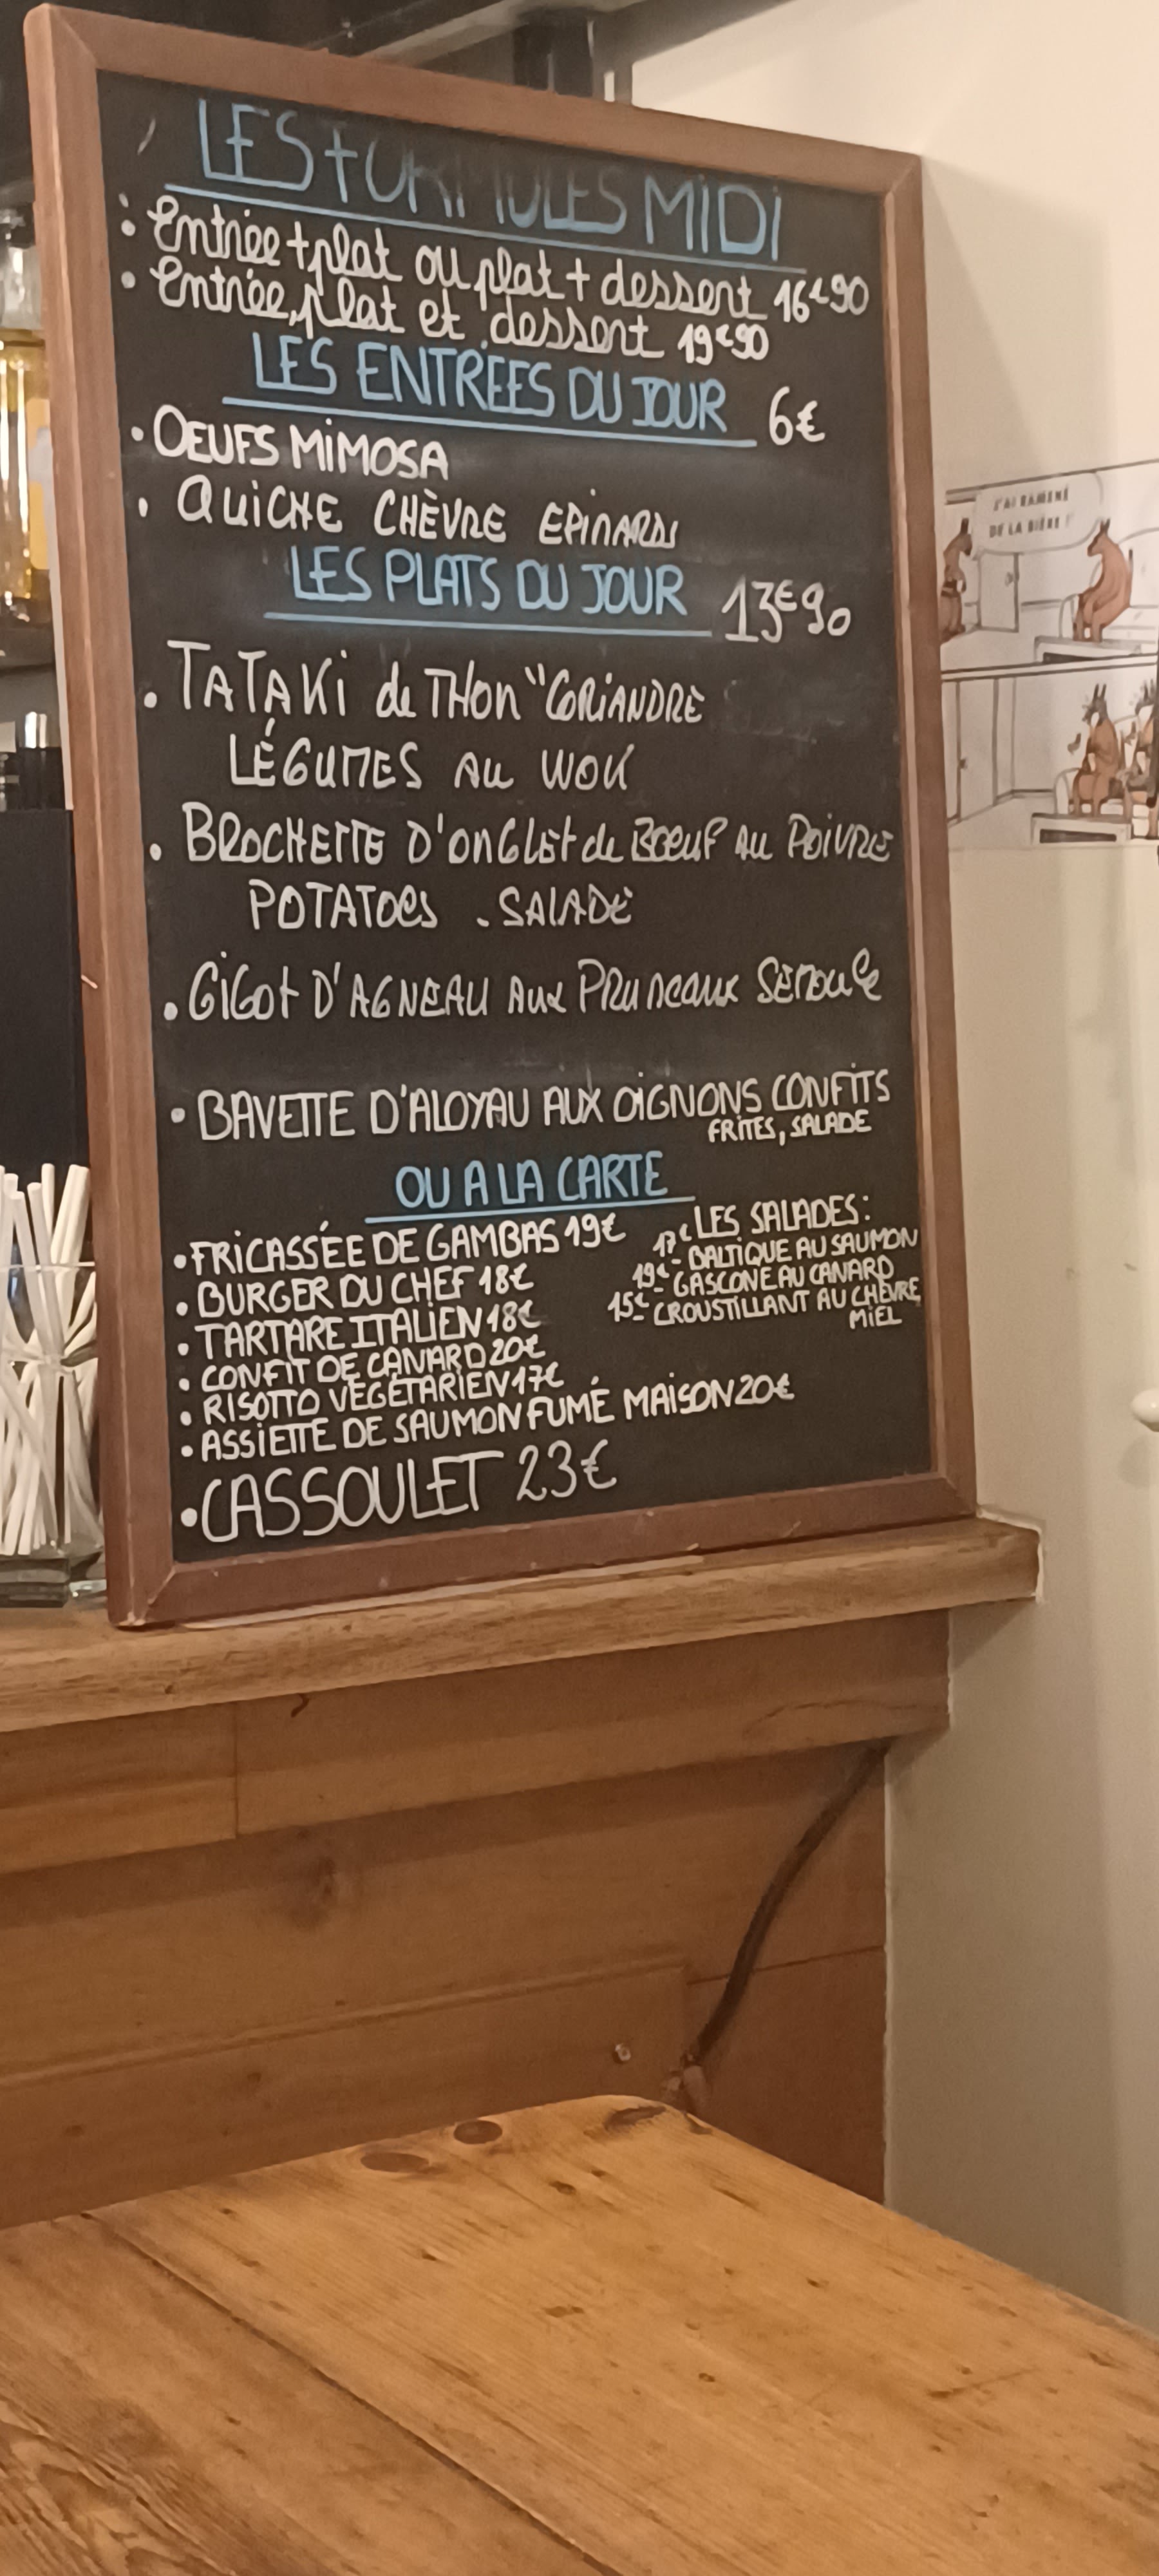 LES FORMULES MIDI
• Entrée + plat ou plat + dessert 16€90
• Entrée, plat et dessert 19€90
LES ENTRÉES DU JOUR 6€
• OEUFS MIMOSA
• QUICHE CHÈVRE EPINARDS
LES PLATS DU JOUR 13€90
• TATAKI de THON "CORIANDRE
LÉGUMES AU WOK
• BROCHETTE D'ONGLET de BOEUF AU POIVRE
POTATOES . SALADE
• GIGOT D'AGNEAU AUX PRUNEAUX SEMOULE
• BAVETTE D'ALOYAU AUX OIGNONS CONFITS
FRITES, SALADE
OU A LA CARTE
• FRICASSÉE DE GAMBAS 19€
• BURGER DU CHEF 18€
• TARTARE ITALIEN 18€
• CONFIT DE CANARD 20€
• RISOTTO VÉGÉTARIEN 17€
• ASSIETTE DE SAUMON FUMÉ MAISON 20€
• CASSOULET 23€
LES SALADES:
17€ - BALTIQUE AU SAUMON
19€ - GASCONE AU CANARD
15€ - CROUSTILLANT AU CHÈVRE,
MIEL
J'AI RAMENÉ
DE LA BIÈRE !